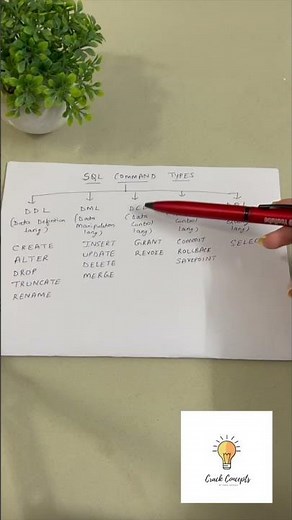 SQL COMMAND TYPES
DDL
(Data Definition lang)
CREATE
ALTER
DROP
TRUNCATE
RENAME
DML
(Data
Manipulation
lang)
INSERT
UPDATE
DELETE
MERGE
(Data
Control
lang)
GRANT
REVOKE
Control
lang)
COMMIT
ROLLBACK
SAVEPOINT
lang)
Crack Concepts